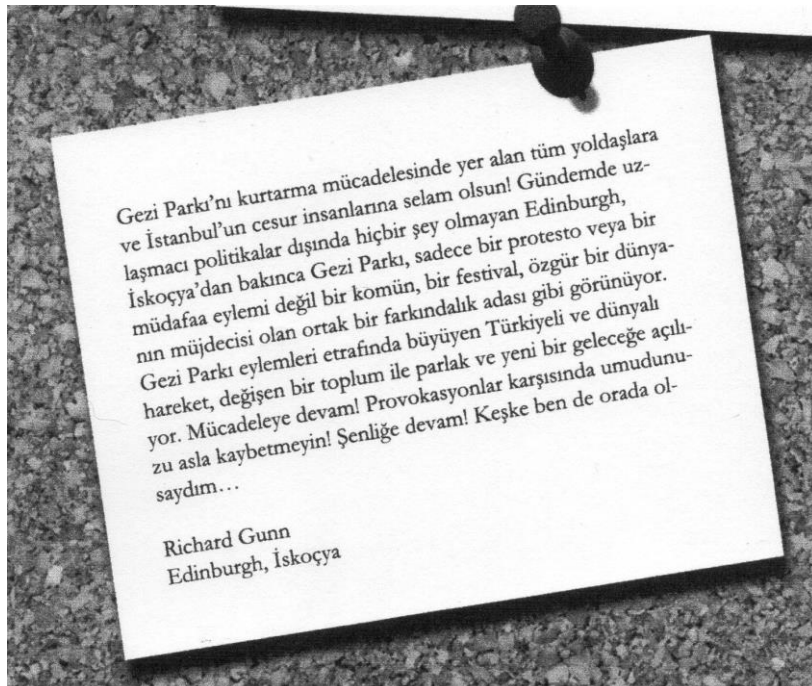 Gezi Parkı'nı kurtarma mücadelesinde yer alan tüm yoldaşlara
ve İstanbul'un cesur insanlarına selam olsun! Gündemde uz-
laşmacı politikalar dışında hiçbir şey olmayan Edinburgh,
İskoçya'dan bakınca Gezi Parkı, sadece bir protesto veya bir
müdafaa eylemi değil bir komün, bir festival, özgür bir dünya-
nın müjdecisi olan ortak bir farkındalık adası gibi görünüyor.
Gezi Parkı eylemleri etrafında büyüyen Türkiyeli ve dünyalı
hareket, değişen bir toplum ile parlak ve yeni bir geleceğe açılı-
yor. Mücadeleye devam! Provokasyonlar karşısında umudunu-
zu asla kaybetmeyin! Şenliğe devam! Keşke ben de orada ol-
saydım…
Richard Gunn
Edinburgh, İskoçya